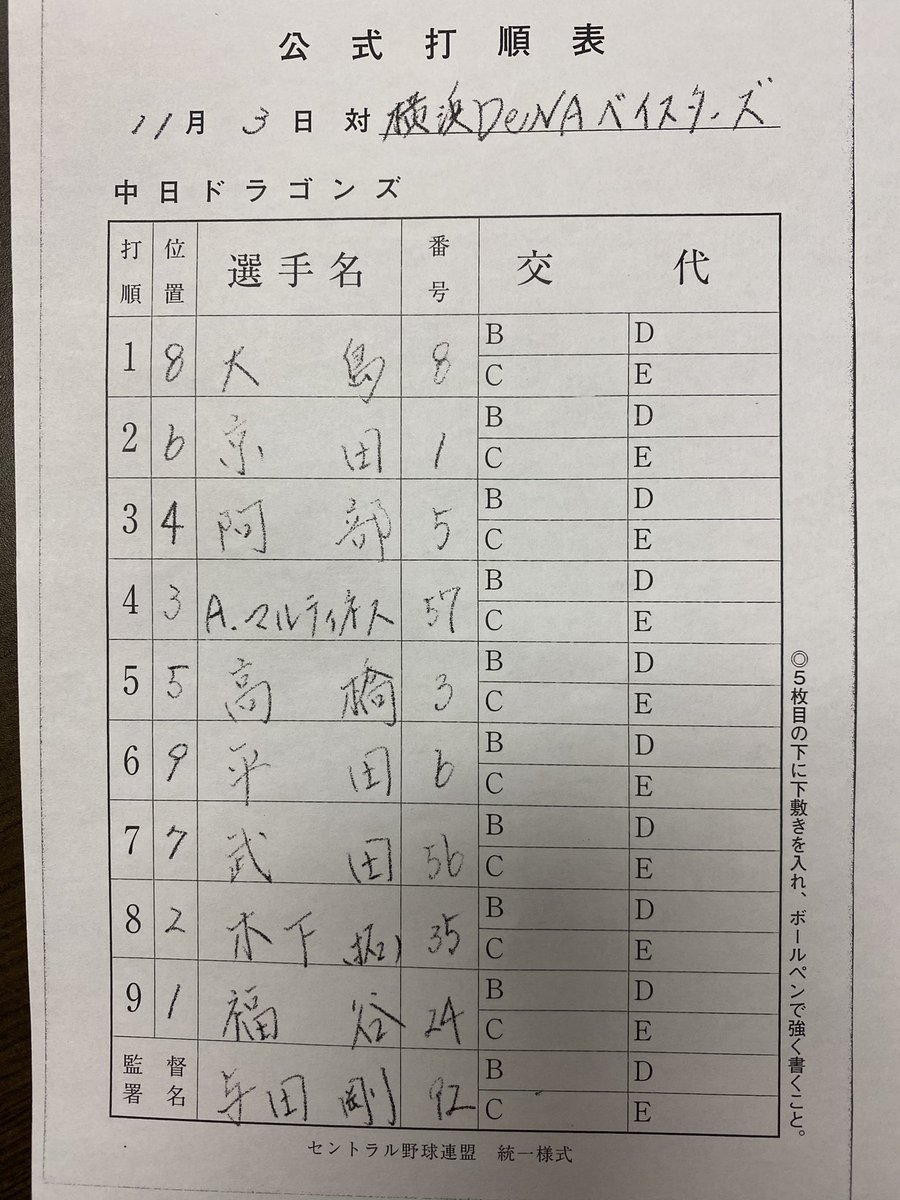 公式打順表
11月3日 対 横浜DeNAベイスターズ
中日ドラゴンズ
打順 位置 選手名 番号 交代
1 8 大島 8 B D C E
2 6 京田 1 B D C E
3 4 阿部 5 B D C E
4 3 A.マルティネス 57 B D C E
5 5 高橋 3 B D C E
6 9 平田 6 B D C E
7 7 武田 56 B D C E
8 2 木下(拓) 35 B D C E
9 1 福谷 24 B D C E
監督署名 与田剛 92 B D C E
◎5枚目の下に下敷きを入れ、ボールペンで強く書くこと。
セントラル野球連盟 統一様式